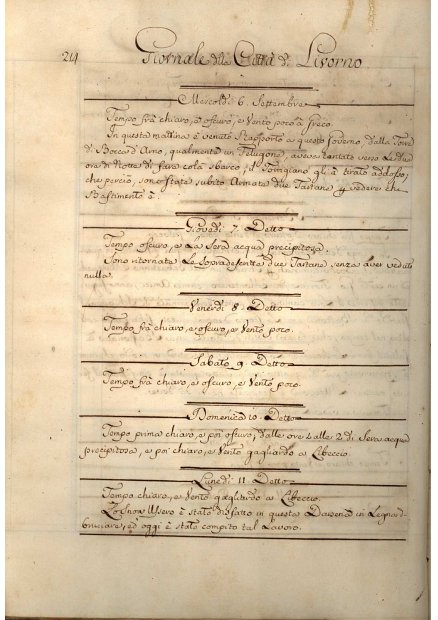 214 Giornale della Città di Livorno.
Mercoldì 6. Settembre
Tempo frà chiaro, e oscuro, e Vento poco à greco.
In questa mattina è venuto Rapporto a questo Governo, dalla Torre
di Bocca d'Arno, qualmente un Felugone, aveva tentato verso Le due
ore di Notte di fare colà sbarco, il Torrigiano gli à tirato addosso,
che perciò, sono state subito Armate due Tartane p vedere che
Bastimento è.
Giovedì 7. Detto
Tempo oscuro, e La Sera acqua precipitosa.
Sono ritornate Le sopradescritte due Tartane senza aver veduto
nulla.
Venerdì 8. Detto
Tempo frà chiaro, e oscuro, e Vento poco.
Sabato 9. Detto
Tempo frà chiaro, e oscuro, e Vento poco.
Domenica 10. Detto
Tempo prima chiaro, e poi oscuro, dalle ore alle 2 di Sera acqua
precipitosa, e poi chiaro, e Vento gagliardo a Libeccio.
Lunedì 11. Detto
Tempo chiaro, e Vento gagliardo a Libeccio.
è stato disfatto in questa Darsena in Legna d
bruciare, ed oggi è stato compito tal Lavoro.